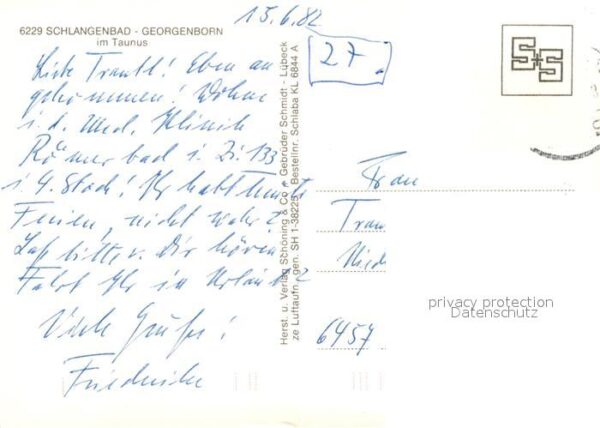 15.6.82
6229 SCHLANGENBAD - GEORGENBORN
im Taunus
27.
S+S
Liebe Trautl! Eben an
gekommen! Wohne
i. d. Med. Klinik
Römerbad i. Zi. 133
i 4. Stock! Ihr habt heute
Ferien, nicht wahr?
Laß bitte v. Dir hören
Fahrt Ihr in Urlaub?
Viele Grüße!
Friederike
Herst. u. Verlag Schöning & Co + Gebrüder Schmidt - Lübeck
ze Luftaufn. gen. SH 1-38225 Bestellnr. Schlaba KL 6844 A
Frau
Trau
Nied
6457
privacy protection
Datenschutz